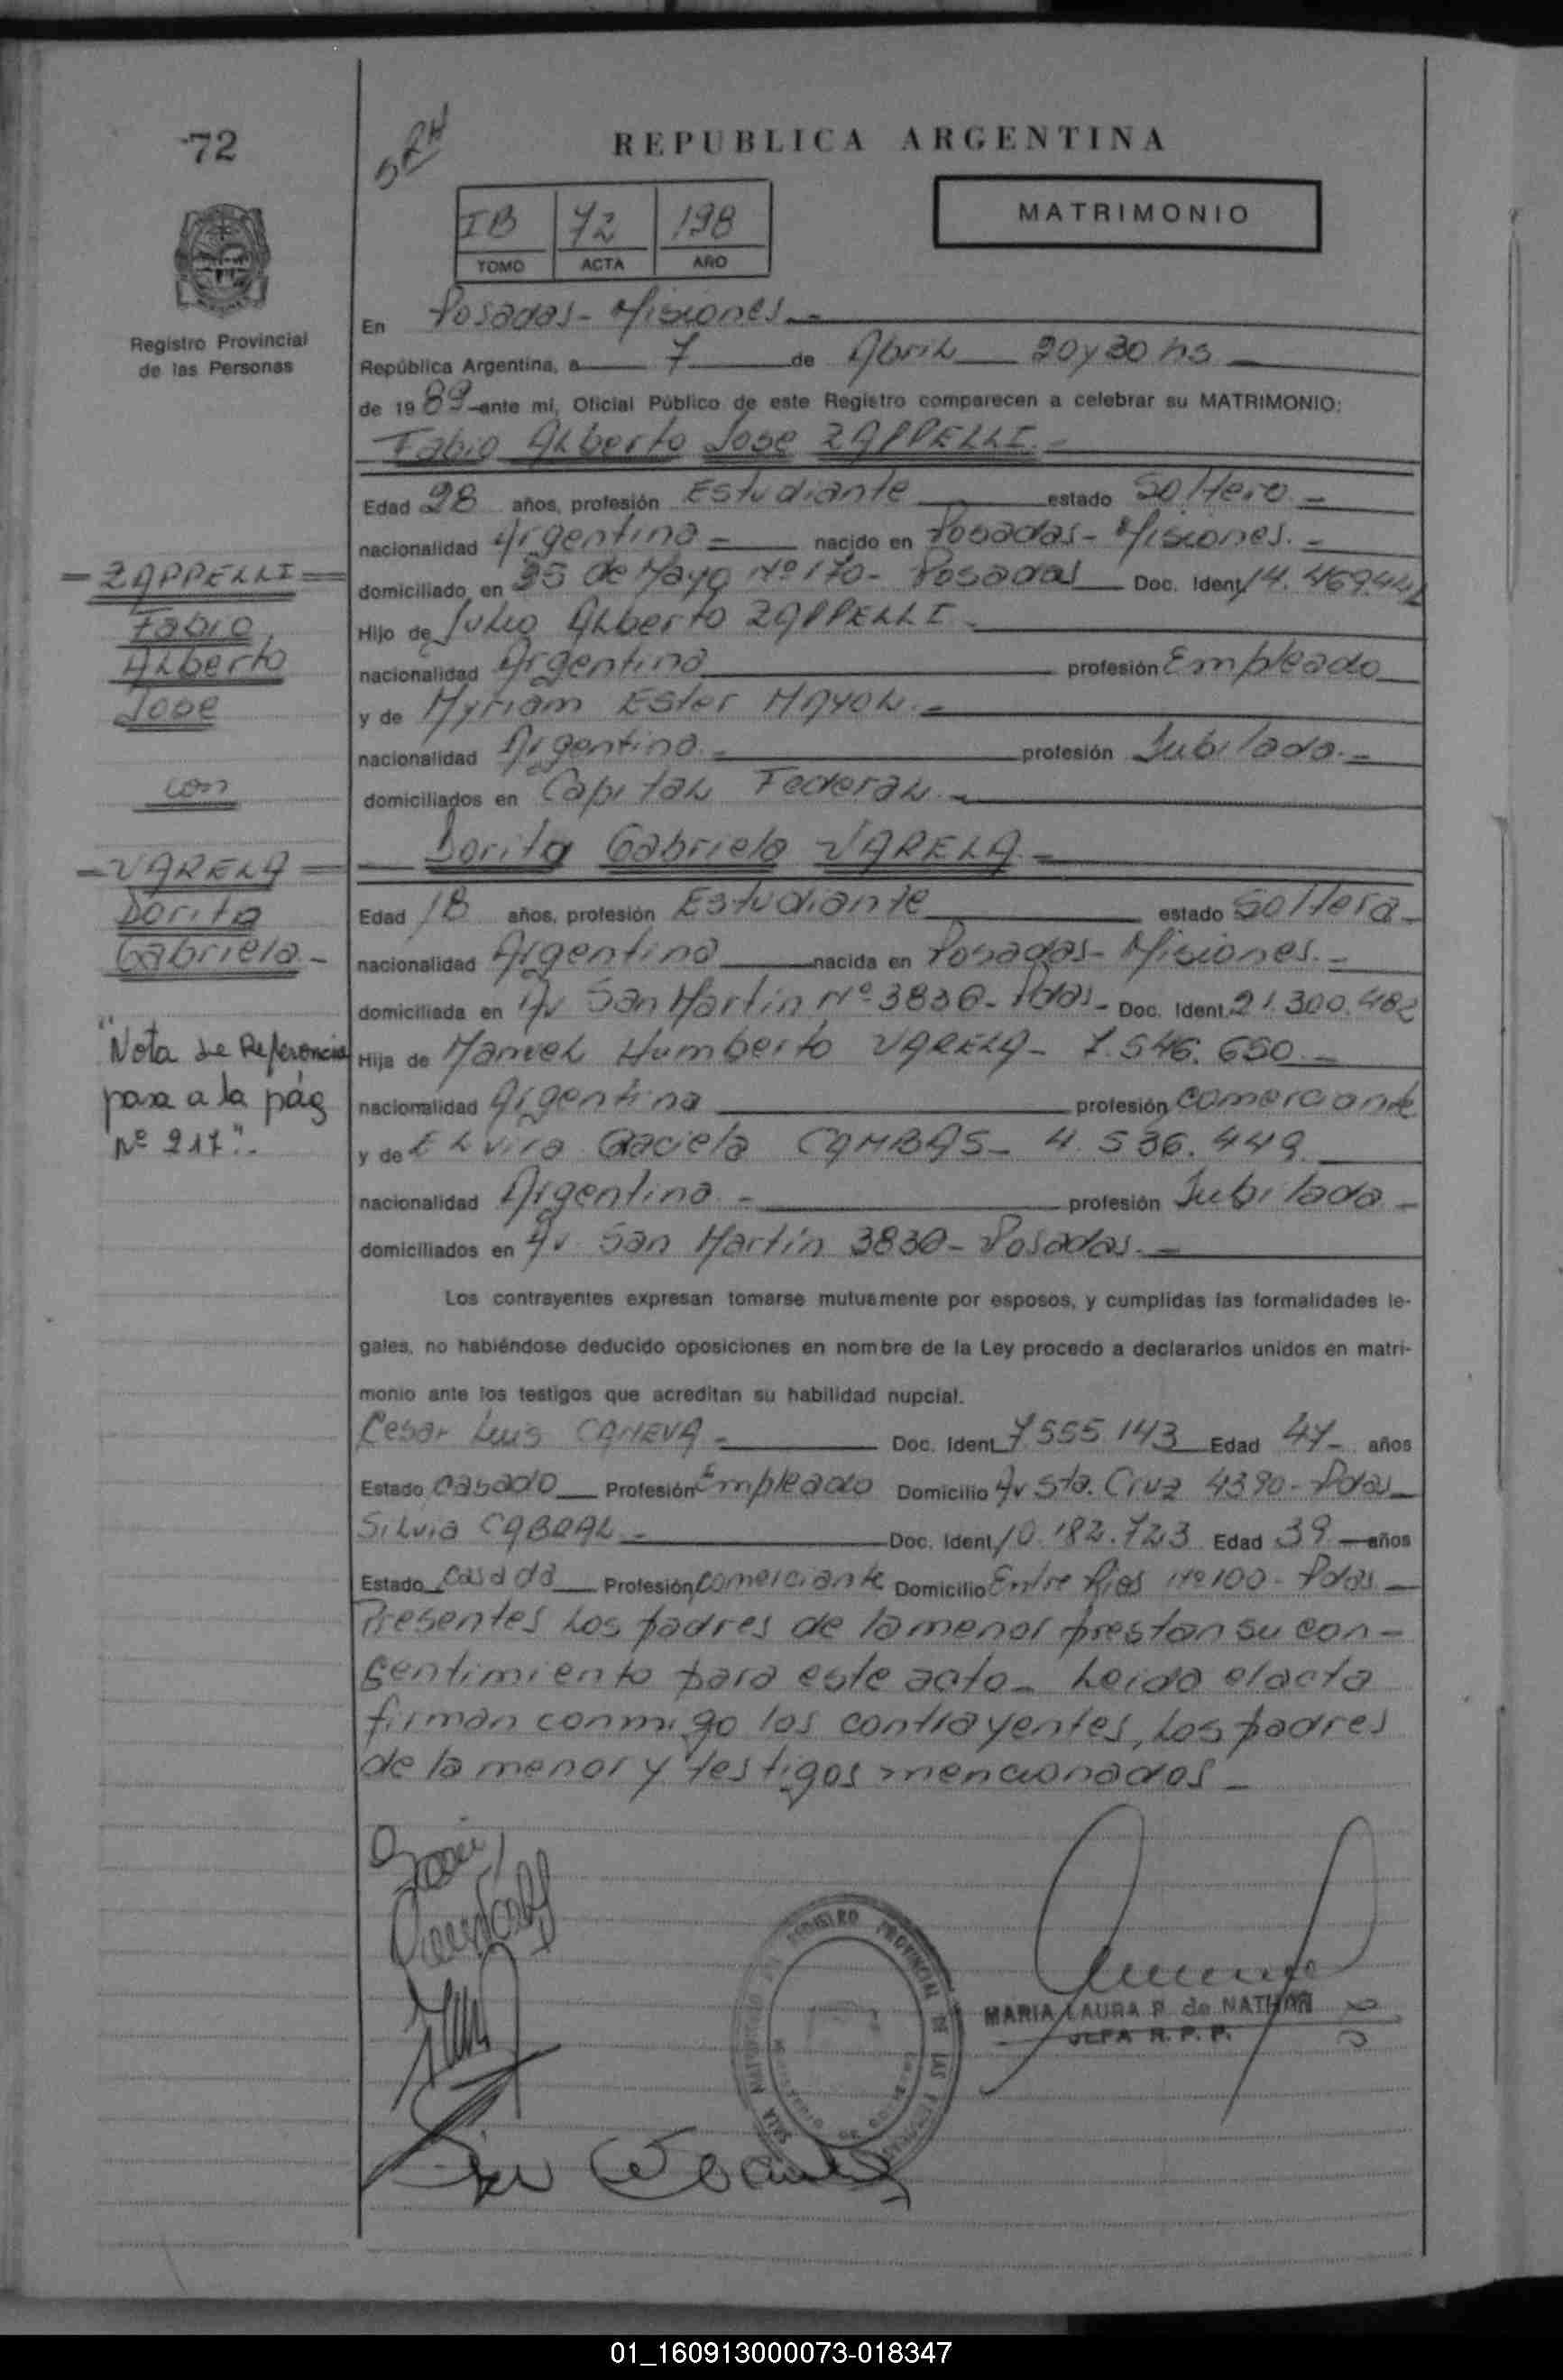 72
REPUBLICA ARGENTINA
IB 72 198
TOMO ACTA AÑO
MATRIMONIO
Registro Provincial
de las Personas
En Posadas - Misiones.-
República Argentina, a 7 de Abril 20 y 30 hs
de 1989 ante mí, Oficial Público de este Registro comparecen a celebrar su MATRIMONIO:
Fabio Alberto Jose ZAPPELLI.-
Edad 28 años, profesión Estudiante estado Soltero.-
nacionalidad Argentina nacido en Posadas - Misiones.-
domiciliado en 25 de Mayo Nº 170 - Posadas Doc. Ident. 14.469.441
Hijo de Julio Alberto ZAPPELLI.
nacionalidad Argentina profesión Empleado
y de Myriam Ester MAYOL.-
nacionalidad Argentina.- profesión Jubilada.-
domiciliados en Capital Federal.-
ZAPPELLI
Fabio
Alberto
Jose
con
VARELA
Dorita
Gabriela.-
"Nota de Referencia
pasa a la pág
Nº 217".
Dorita Gabriela VARELA.-
Edad 18 años, profesión Estudiante estado Soltera
nacionalidad Argentina nacida en Posadas - Misiones.-
domiciliada en Av San Martín Nº 3830 - Pdas - Doc. Ident. 21.300.482
Hija de Manuel Humberto VARELA - 7.546.650.-
nacionalidad Argentina profesión comerciante
y de Elvira Graciela CAMBAS - 4.536.449.
nacionalidad Argentina.- profesión Jubilada
domiciliados en Av San Martín 3830 - Posadas.-
Los contrayentes expresan tomarse mutuamente por esposos, y cumplidas las formalidades le-
gales, no habiéndose deducido oposiciones en nombre de la Ley procedo a declararlos unidos en matri-
monio ante los testigos que acreditan su habilidad nupcial.
Cesar Luis CANEVA - Doc. Ident. 7.555.143 Edad 47 años
Estado casado Profesión Empleado Domicilio Av Sta. Cruz 4390 - Pdas
Silvia CABRAL - Doc. Ident. 10.182.723 Edad 39 años
Estado casada Profesión comerciante Domicilio Entre Rios Nº 100 - Pdas
Presentes los padres de la menor prestan su con-
sentimiento para este acto - Leida el acta
firman conmigo los contrayentes, los padres
de la menor y testigos mencionados -
REGISTRO PROVINCIAL DE LAS PERSONAS
MARIA LAURA P. de NATHAN
JEFA R. P. P.
01_160913000073-018347